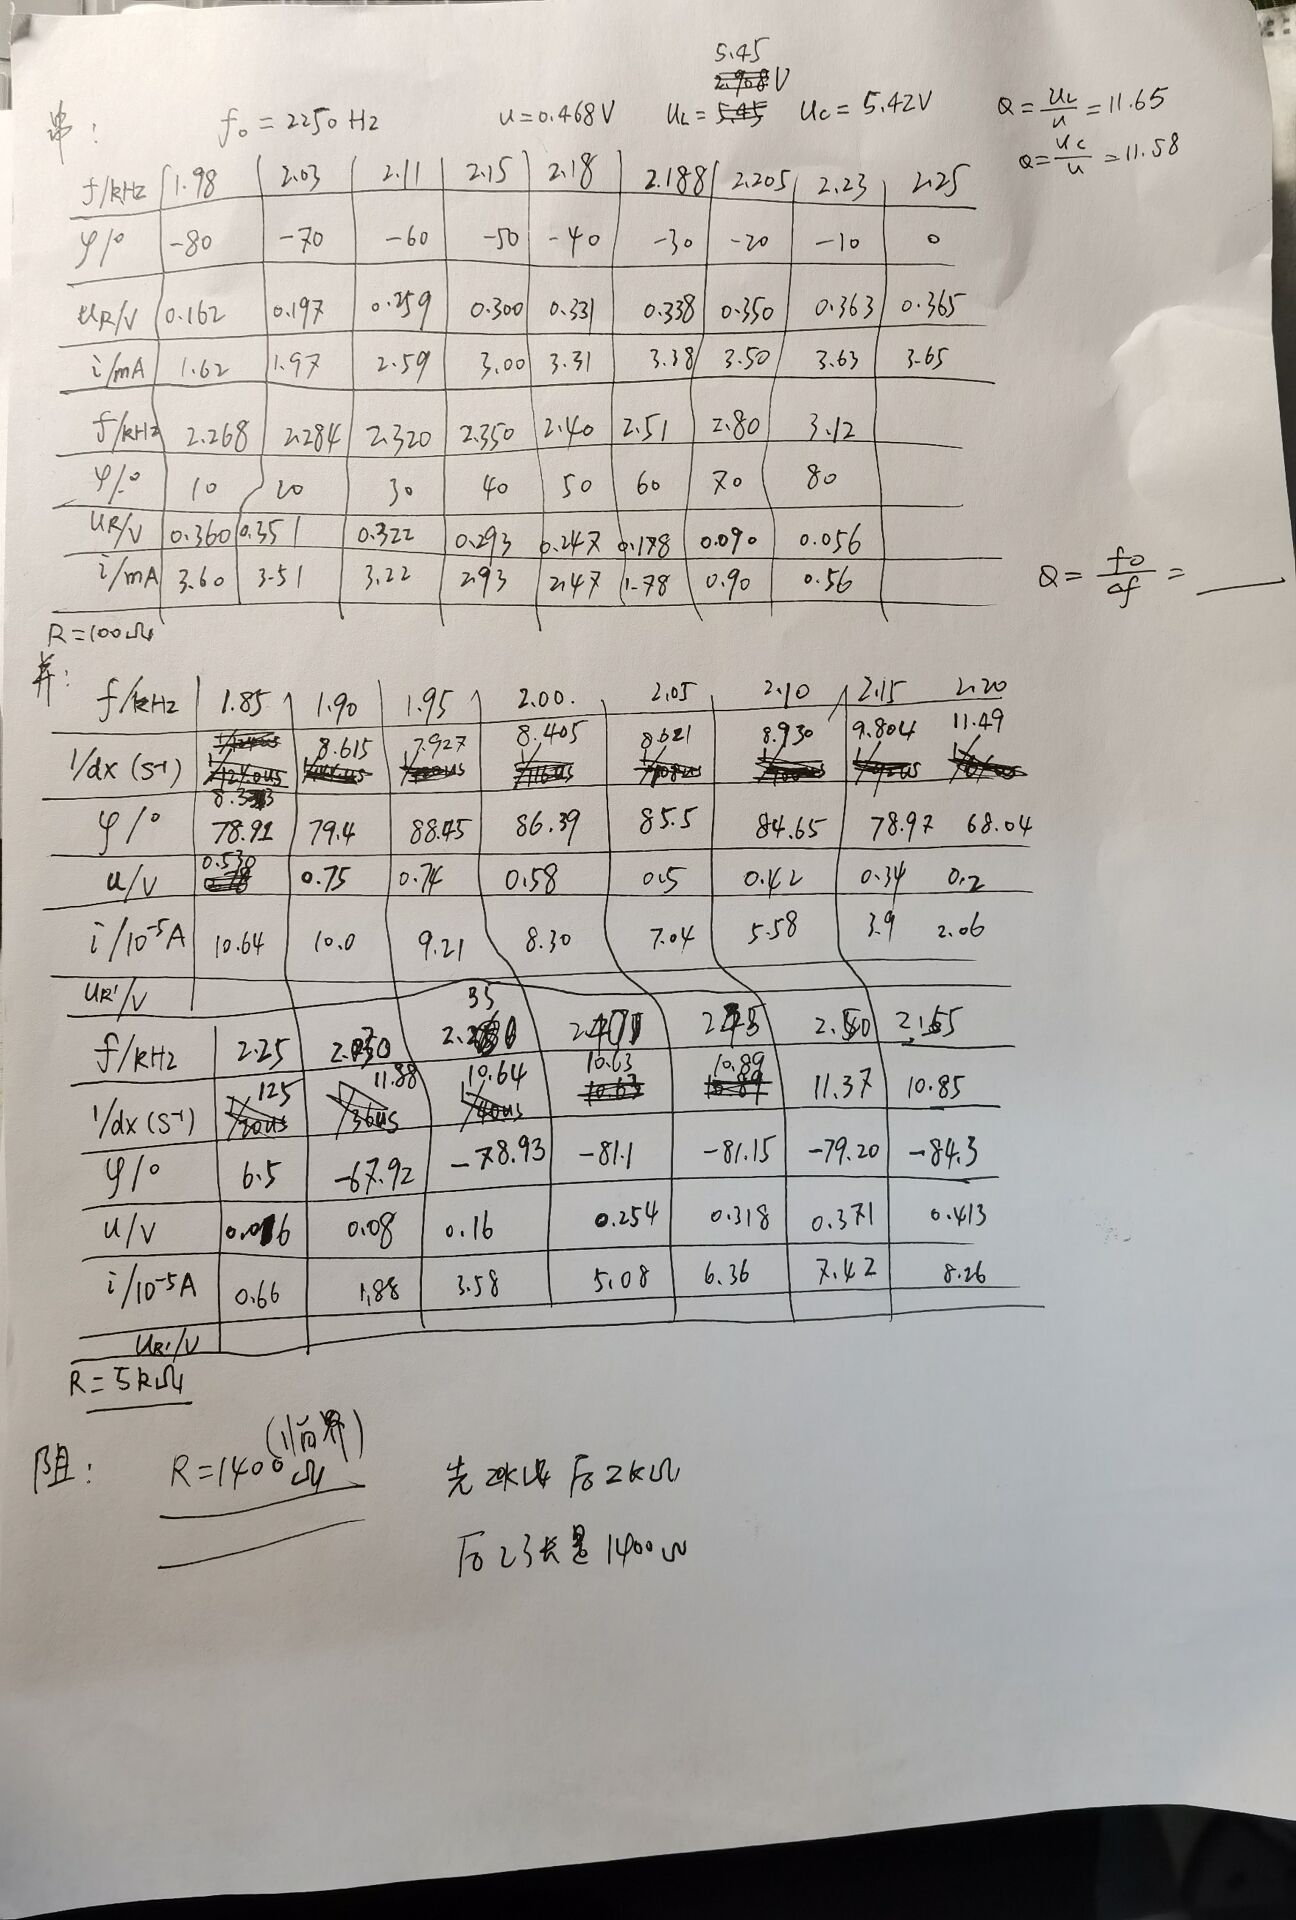 串: f₀ = 2250 Hz u = 0.468V UL = 5.45 V Uc = 5.42V
Q = UL/u = 11.65
Q = Uc/u = 11.58
f/kHz 1.98 2.03 2.11 2.15 2.18 2.188 2.205 2.23 2.25
φ/° -80 -70 -60 -50 -40 -30 -20 -10 0
UR/V 0.162 0.197 0.259 0.300 0.331 0.338 0.350 0.363 0.365
i/mA 1.62 1.97 2.59 3.00 3.31 3.38 3.50 3.63 3.65
f/kHz 2.268 2.284 2.320 2.350 2.40 2.51 2.80 3.12
φ/° 10 20 30 40 50 60 70 80
UR/V 0.360 0.351 0.322 0.293 0.247 0.178 0.090 0.056
i/mA 3.60 3.51 3.22 2.93 2.47 1.78 0.90 0.56
Q = f₀/Δf = ___
R = 100Ω
并:
f/kHz 1.85 1.90 1.95 2.00 2.05 2.10 2.15 2.20
1/dx (S⁻¹) 8.333 8.615 7.927 8.405 8.621 8.930 9.804 11.49
φ/° 78.91 79.4 88.45 86.39 85.5 84.65 78.97 68.04
u/V 0.530 0.75 0.74 0.58 0.5 0.42 0.34 0.2
i/10⁻⁵A 10.64 10.0 9.21 8.30 7.04 5.58 3.9 2.06
UR'/V
f/kHz 2.25 2.35 2.45 2.50 2.55
1/dx (S⁻¹) 125 11.88 10.64 10.63 10.89 11.37 10.85
φ/° 6.5 -67.92 -78.93 -81.1 -81.15 -79.20 -84.3
u/V 0.016 0.08 0.16 0.254 0.318 0.371 0.413
i/10⁻⁵A 0.66 1.88 3.58 5.08 6.36 7.42 8.26
UR'/V
R = 5kΩ
阻: R = 1400Ω (临界) 先 后2kΩ
后23长是1400Ω